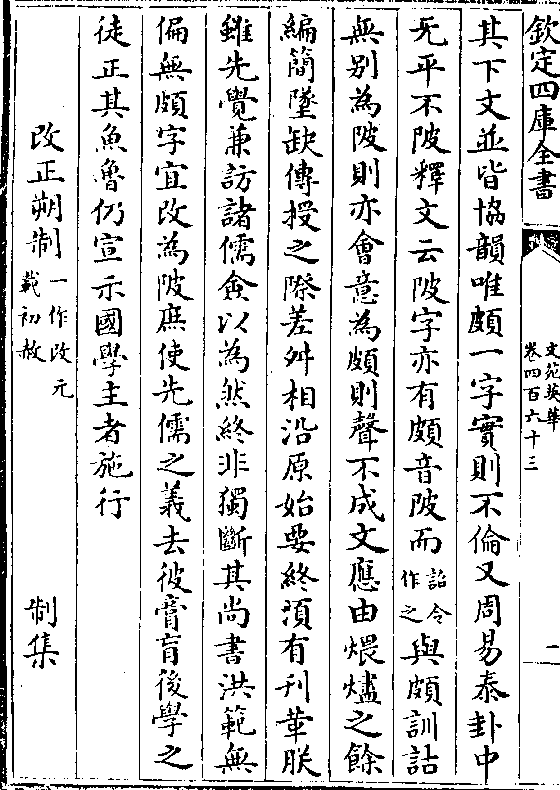 欽定四庫全書
文苑英華
卷四百六十三
二
其下文並皆協韻唯頗一字實則不倫又周易泰卦中
无平不陂釋文云陂字亦有頗音陂而詔令作之與頗訓詁
無别為陂則亦會意為頗則聲不成文應由煨燼之餘
編簡墜缺傳授之際差舛相沿原始要終須有刊革朕
雖先覺兼訪諸儒僉以為然終非獨斷其尚書洪範無
偏無頗字宜改為陂庶使先儒之義去彼膏肓後學之
徒正其魚魯仍宣示國學主者施行
改正朔制一作改元載初赦 制集